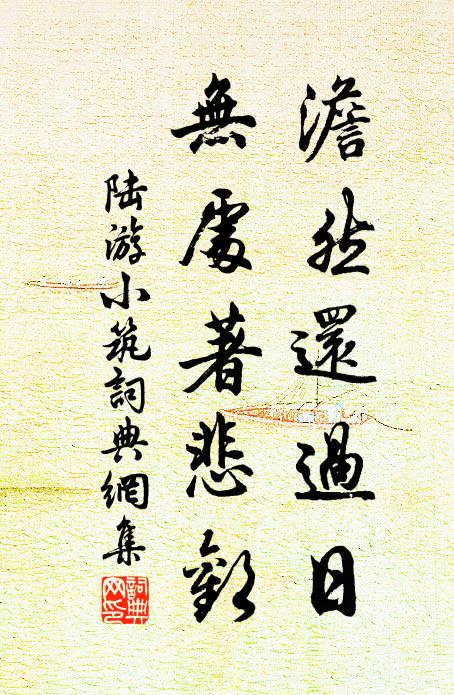 澹然還過日
無處著悲歡
陸游小筑詞典網集
詞典
网印